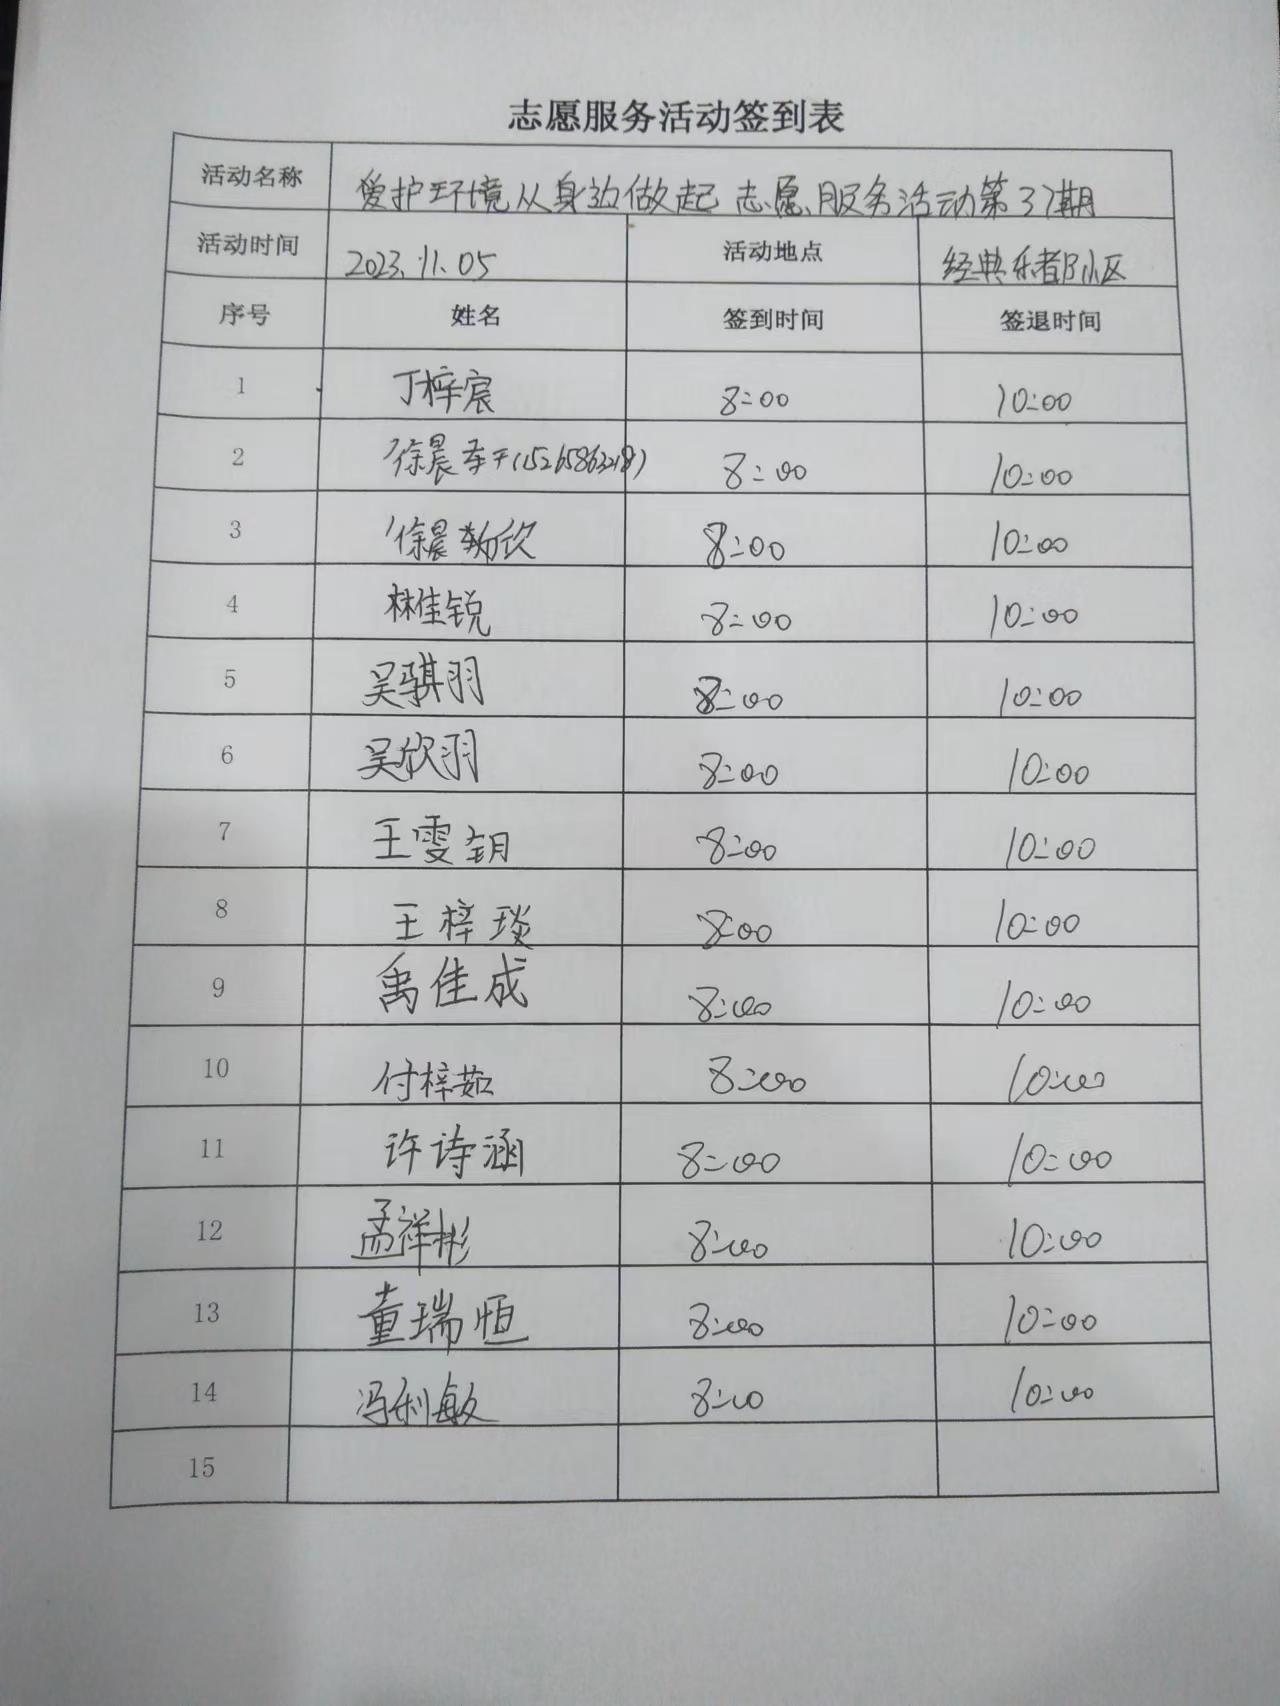 志愿服务活动签到表
活动名称 爱护环境从身边做起 志愿服务活动第37期
活动时间 2023.11.05 活动地点 经典乐都B小区
序号 姓名 签到时间 签退时间
1 丁梓宸 8:00 10:00
2 徐晨 8:00 10:00
3 徐晨 欣 8:00 10:00
4 林佳锐 8:00 10:00
5 吴骐羽 8:00 10:00
6 吴欣羽 8:00 10:00
7 王雯钥 8:00 10:00
8 王梓琰 8:00 10:00
9 禹佳成 8:00 10:00
10 付梓茹 8:00 10:00
11 许诗涵 8:00 10:00
12 孟祥彬 8:00 10:00
13 童瑞恒 8:00 10:00
14 冯利敏 8:00 10:00
15